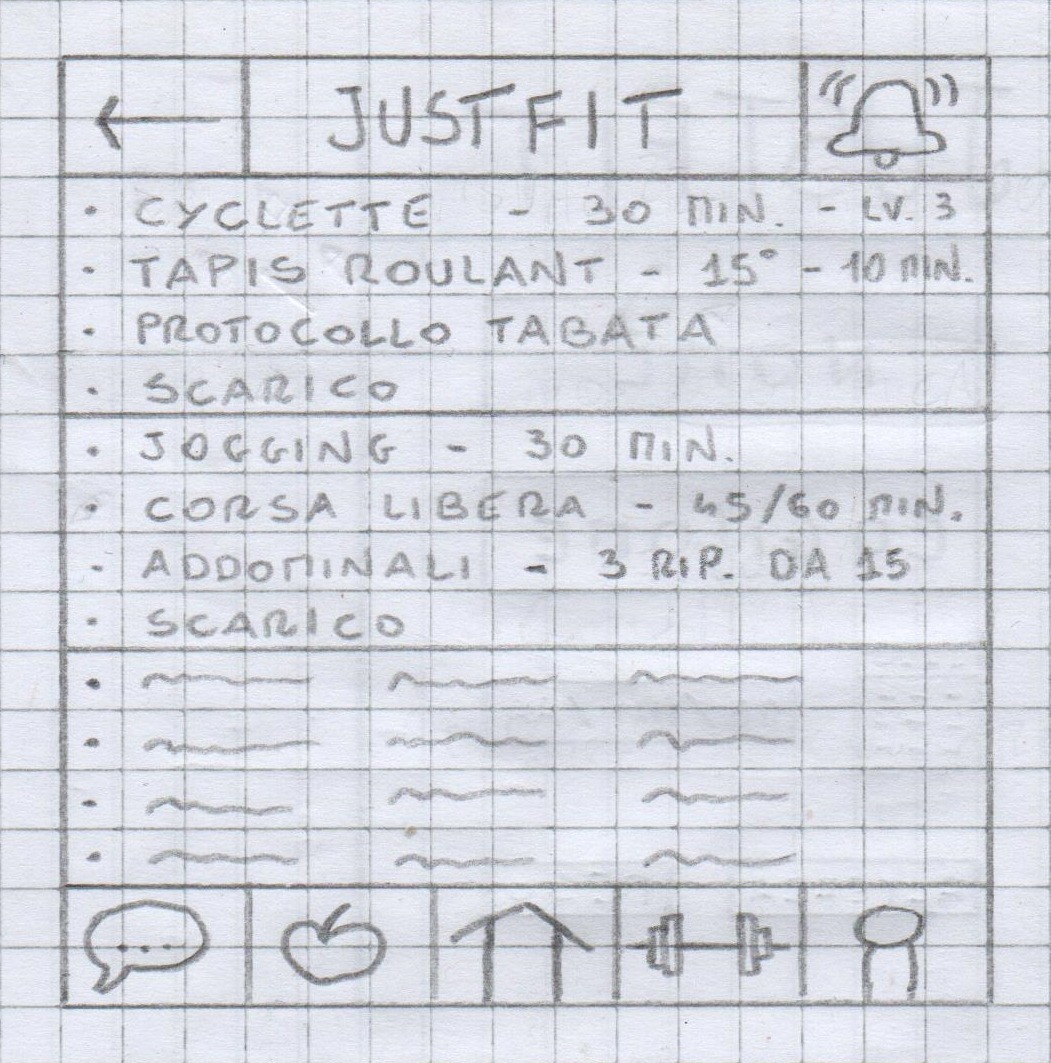 JUSTFIT
· CYCLETTE - 30 MIN. - LV. 3
· TAPIS ROULANT - 15° - 10 MIN.
· PROTOCOLLO TABATA
· SCARICO
· JOGGING - 30 MIN.
· CORSA LIBERA - 45/60 MIN.
· ADDOMINALI - 3 RIP. DA 15
· SCARICO